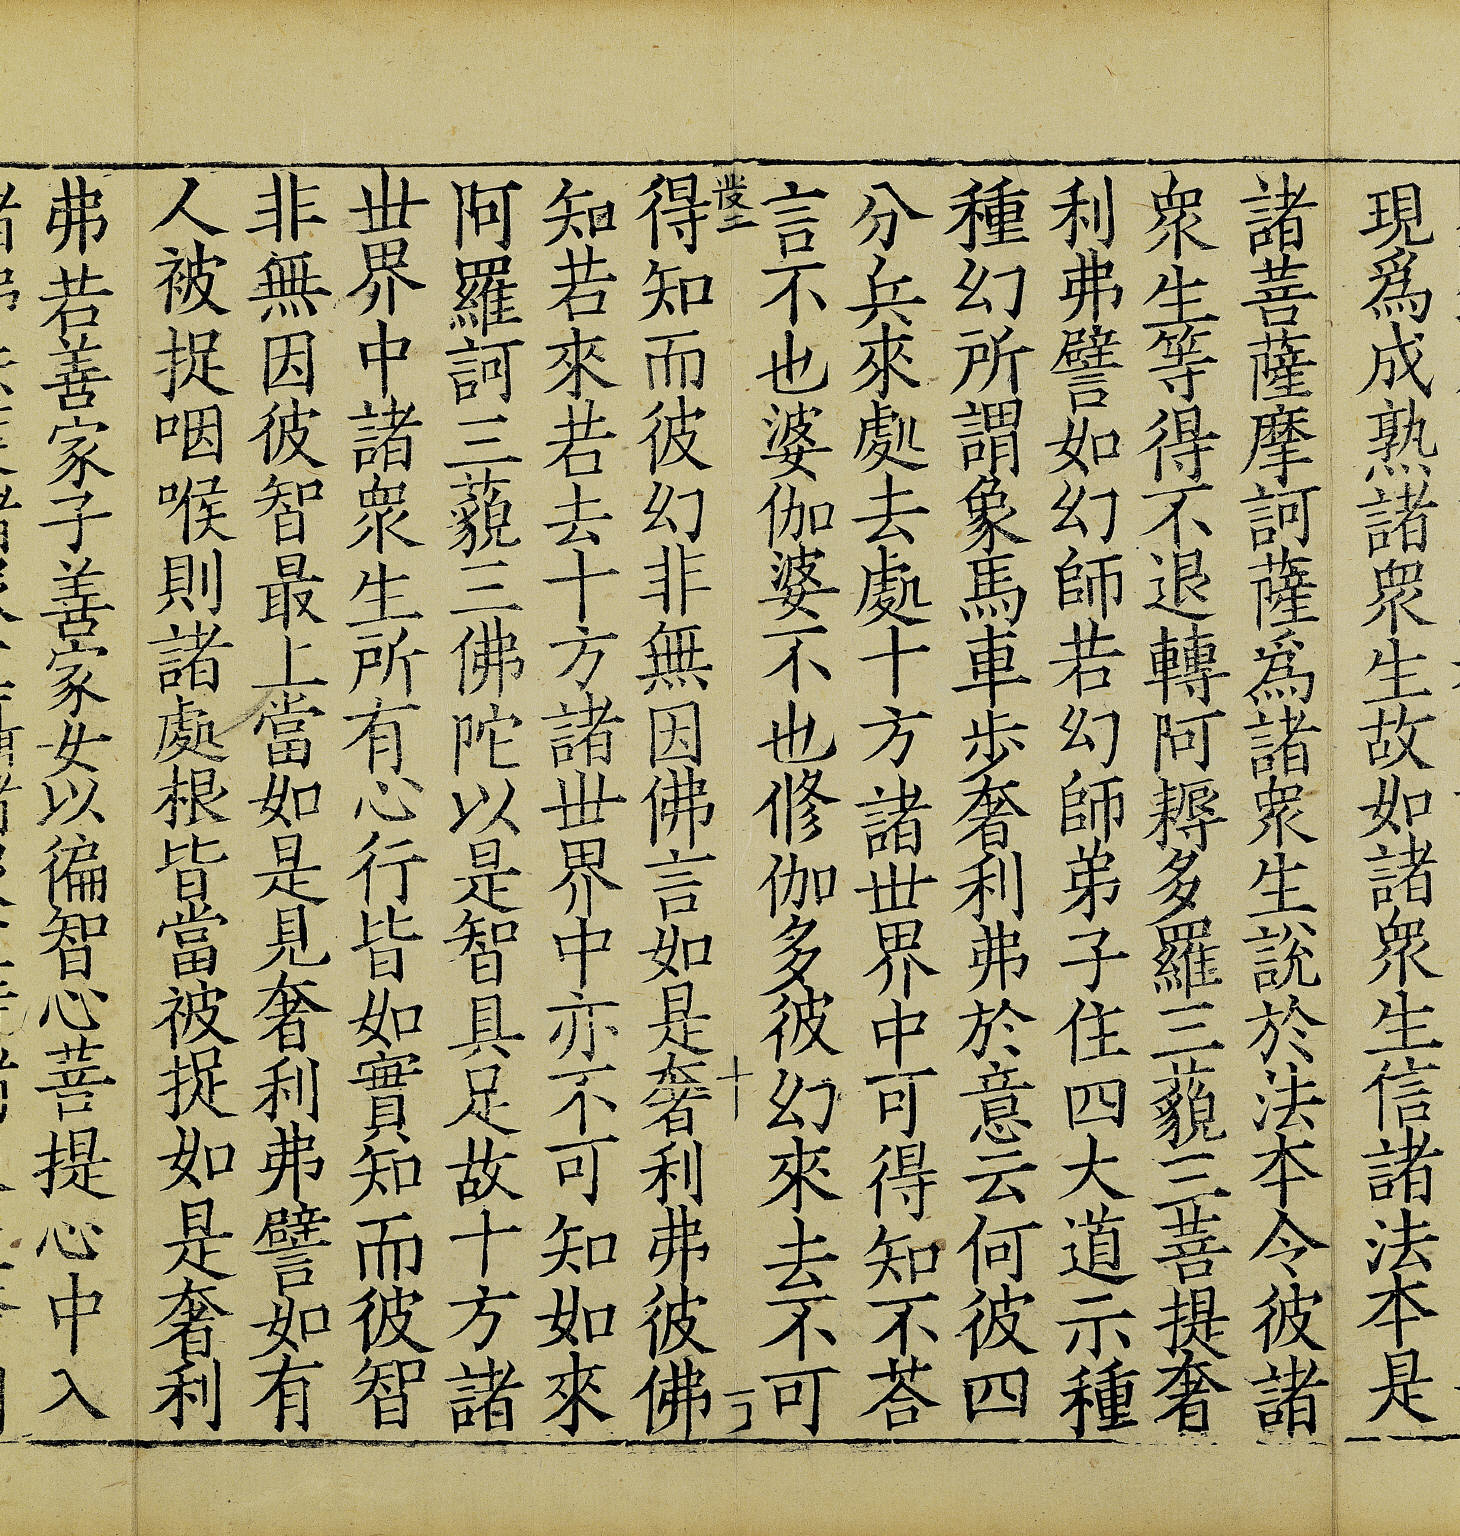 現爲成熟諸衆生故如諸衆生信諸法本是
諸菩薩摩訶薩爲諸衆生說於法本令彼諸
衆生等得不退轉阿耨多羅三藐三菩提奢
利弗譬如幻師若幻師弟子住四大道示種
種幻所謂象馬車步奢利弗於意云何彼四
分兵來處去處十方諸世界中可得知不荅
言不也婆伽婆不也修伽多彼幻來去不可
得知而彼幻非無因佛言如是奢利弗彼佛
知若來若去十方諸世界中亦不可知如來
阿羅訶三藐三佛陀以是智具足故十方諸
世界中諸衆生所有心行皆如實知而彼智
非無因彼智最上當如是見奢利弗譬如有
人被捉咽喉則諸處根皆當被捉如是奢利
弗若善家子善家女以徧智心菩提心中入